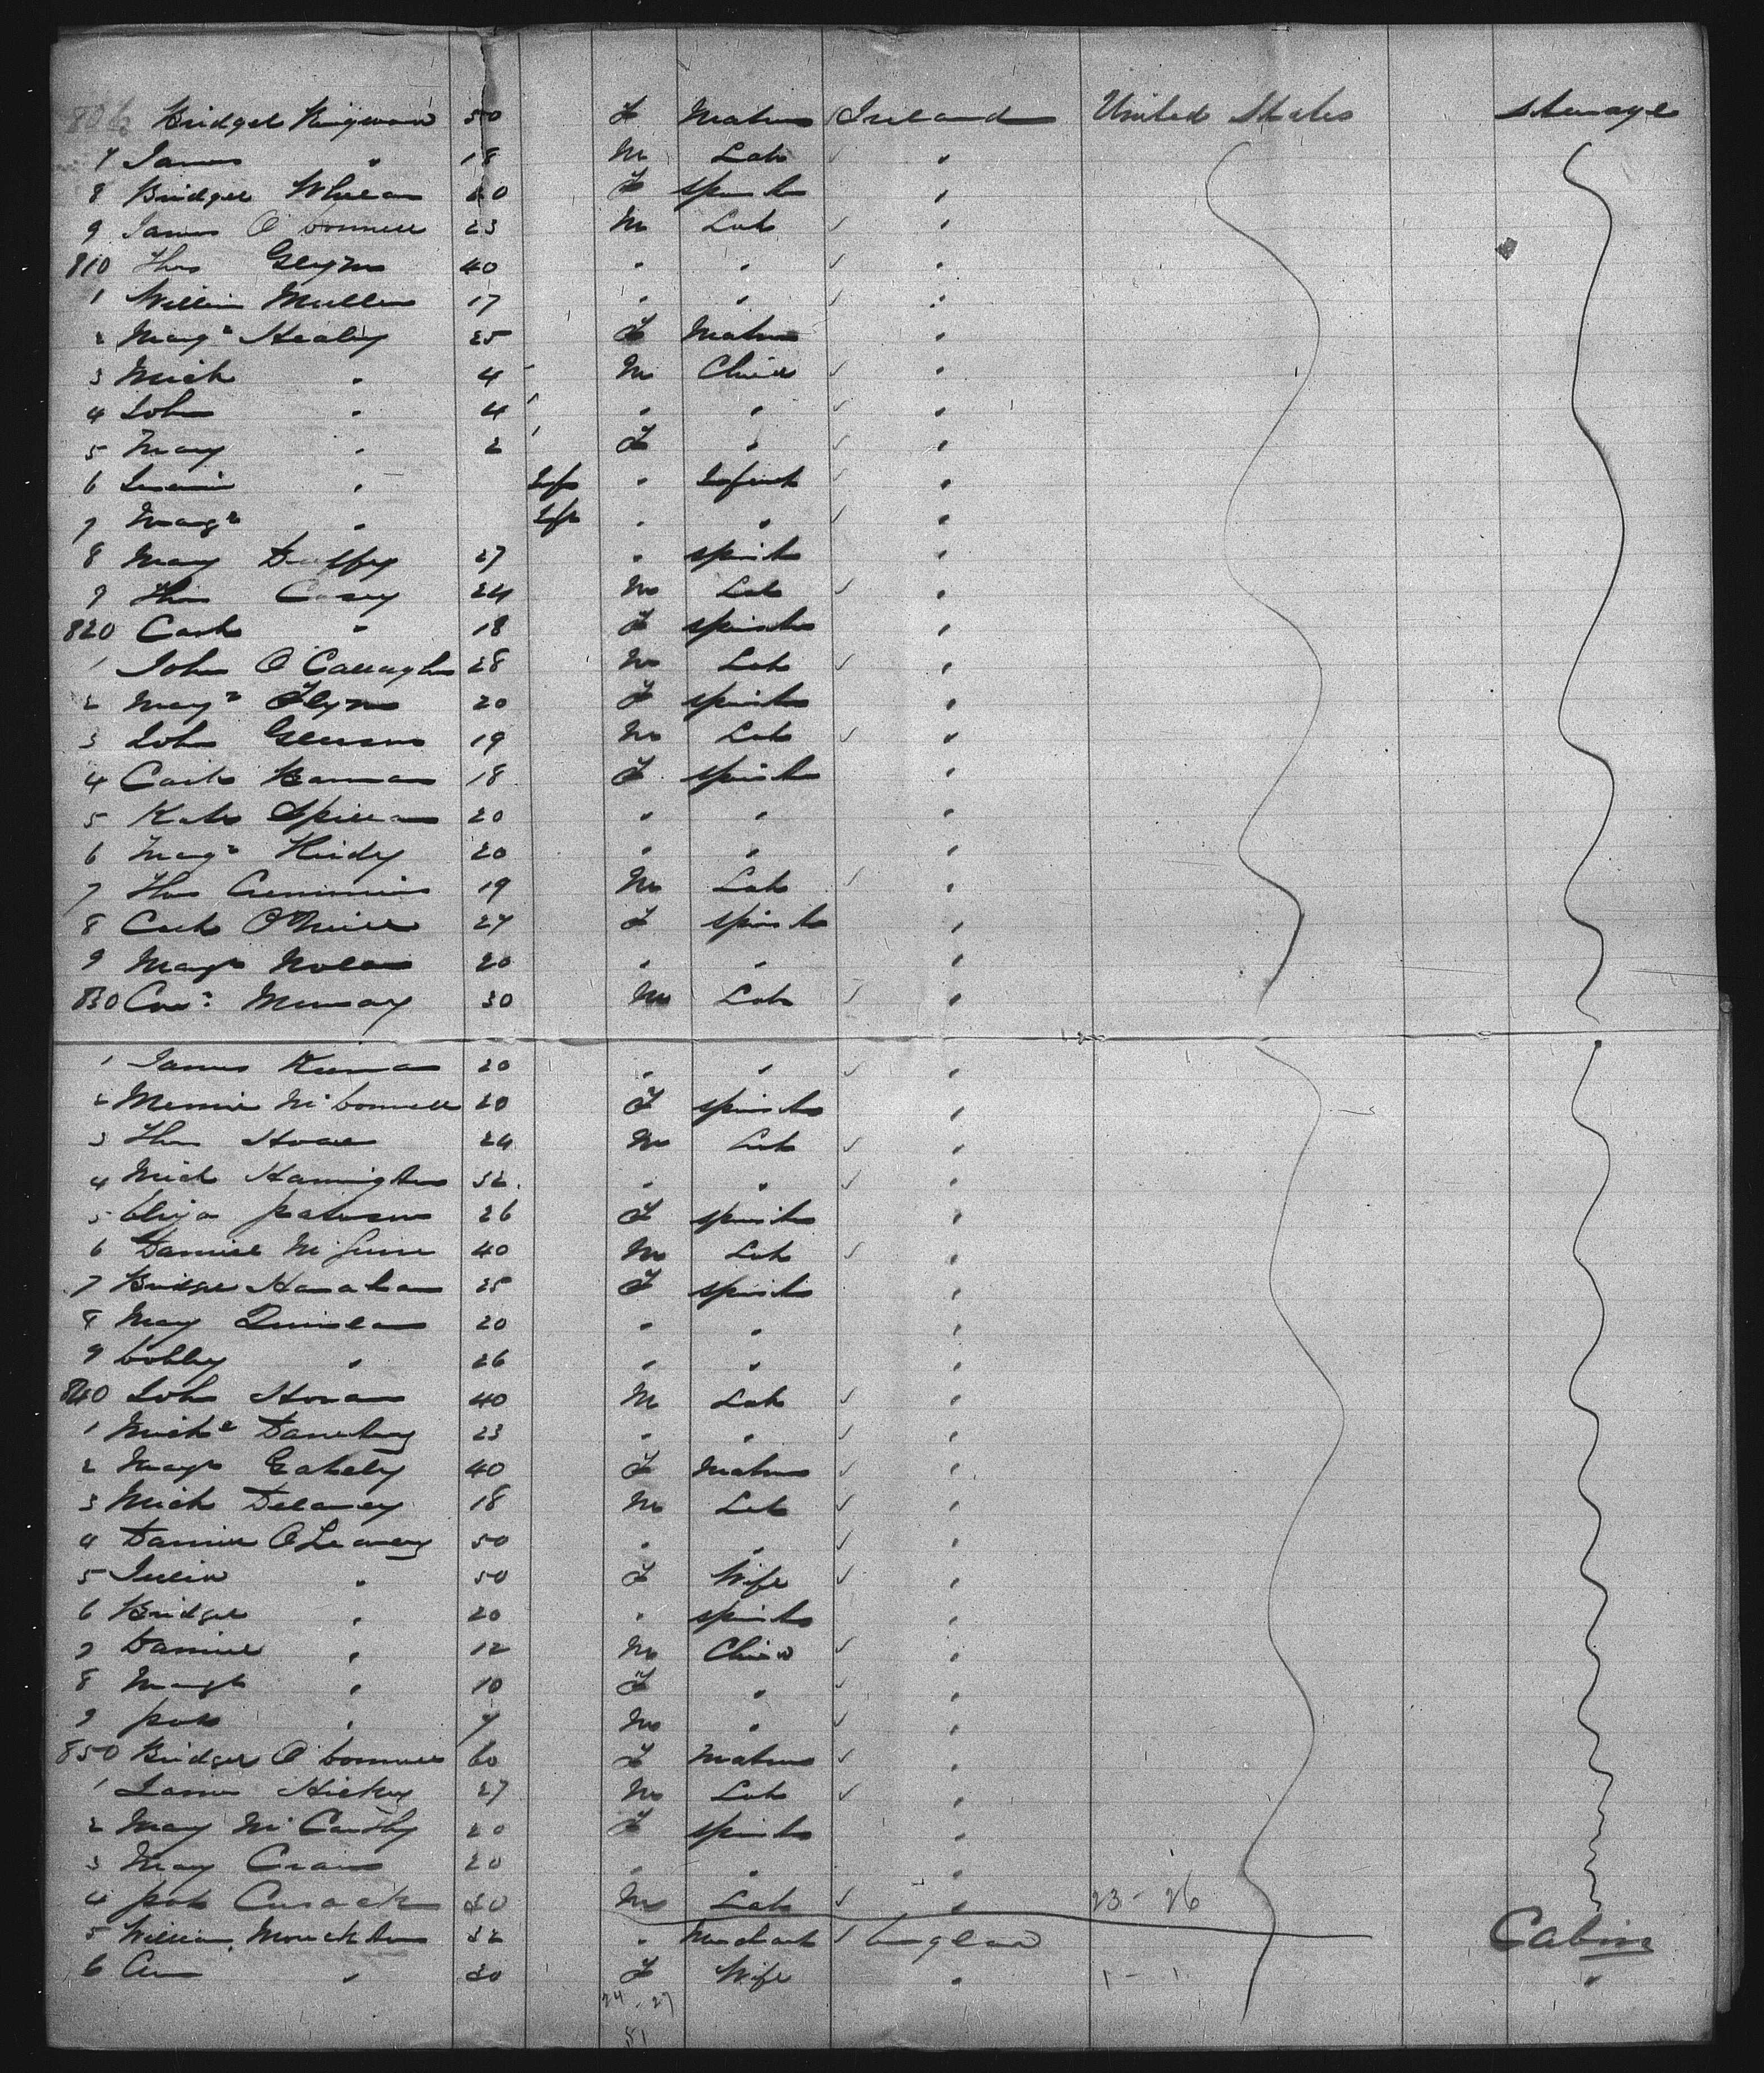 806 Bridget Kingwan 50 F Matron Ireland United States Steerage
7 James " 18 M Lab "
8 Bridget Whelan 60 F Spinster "
9 James O'Connell 23 M Lab "
810 Thos Glynn 40 " " "
1 William Mullen 17 " " "
2 Margt Healey 25 F Matron "
3 Mich " 4 M Child "
4 John " 4 " " "
5 Mary " 2 F " "
6 " Inf " Infant "
7 Margt " Inf " " "
8 Mary Duffy 27 " Spinster "
9 Thos Casey 24 M Lab "
820 Cath " 18 F Spinster "
1 John O'Callaghan 28 M Lab "
2 Margt Flynn 20 F Spinster "
3 John Gleeson 19 M Lab "
4 Cath Bannan 18 F Spinster "
5 Kate Spillan 20 " " "
6 Margt Hurdy 20 " " "
7 Thos Cummins 19 M Lab "
8 Cath O'Neill 27 F Spinster "
9 Margt Nolan 20 " " "
830 Murray 30 M Lab "
1 James Kiernan 20 " " "
2 Minnie McConnell 20 F Spinster "
3 Thos Hoare 24 M Lab "
4 Mich Harrington 32 " " "
5 Eliza 26 F Spinster "
6 Daniel 40 M Lab "
7 Bridget Hanahan 25 F Spinster "
8 Mary Quinlan 20 " " "
9 " 26 " " "
840 John Horan 40 M Lab "
1 Michl 23 " " "
2 Margt Gately 40 F Matron "
3 Mich Delaney 18 M Lab "
4 Daniel O'Leary 50 " " "
5 Julia " 50 F Wife "
6 Bridget " 20 " Spinster "
7 Daniel " 12 M Child "
8 Margt " 10 F " "
9 Pat " 7 M " "
850 Bridget O'Connell 60 F Matron "
1 James Hickey 27 M Lab "
2 Mary McCarthy 20 F Spinster "
3 Mary 20 " " "
4 Pat Cusack 30 M Lab " 23-26
5 William Monckton 32 " Merchant England Cabin
6 Ann " 30 F Wife " 1-1 "
24-27
51